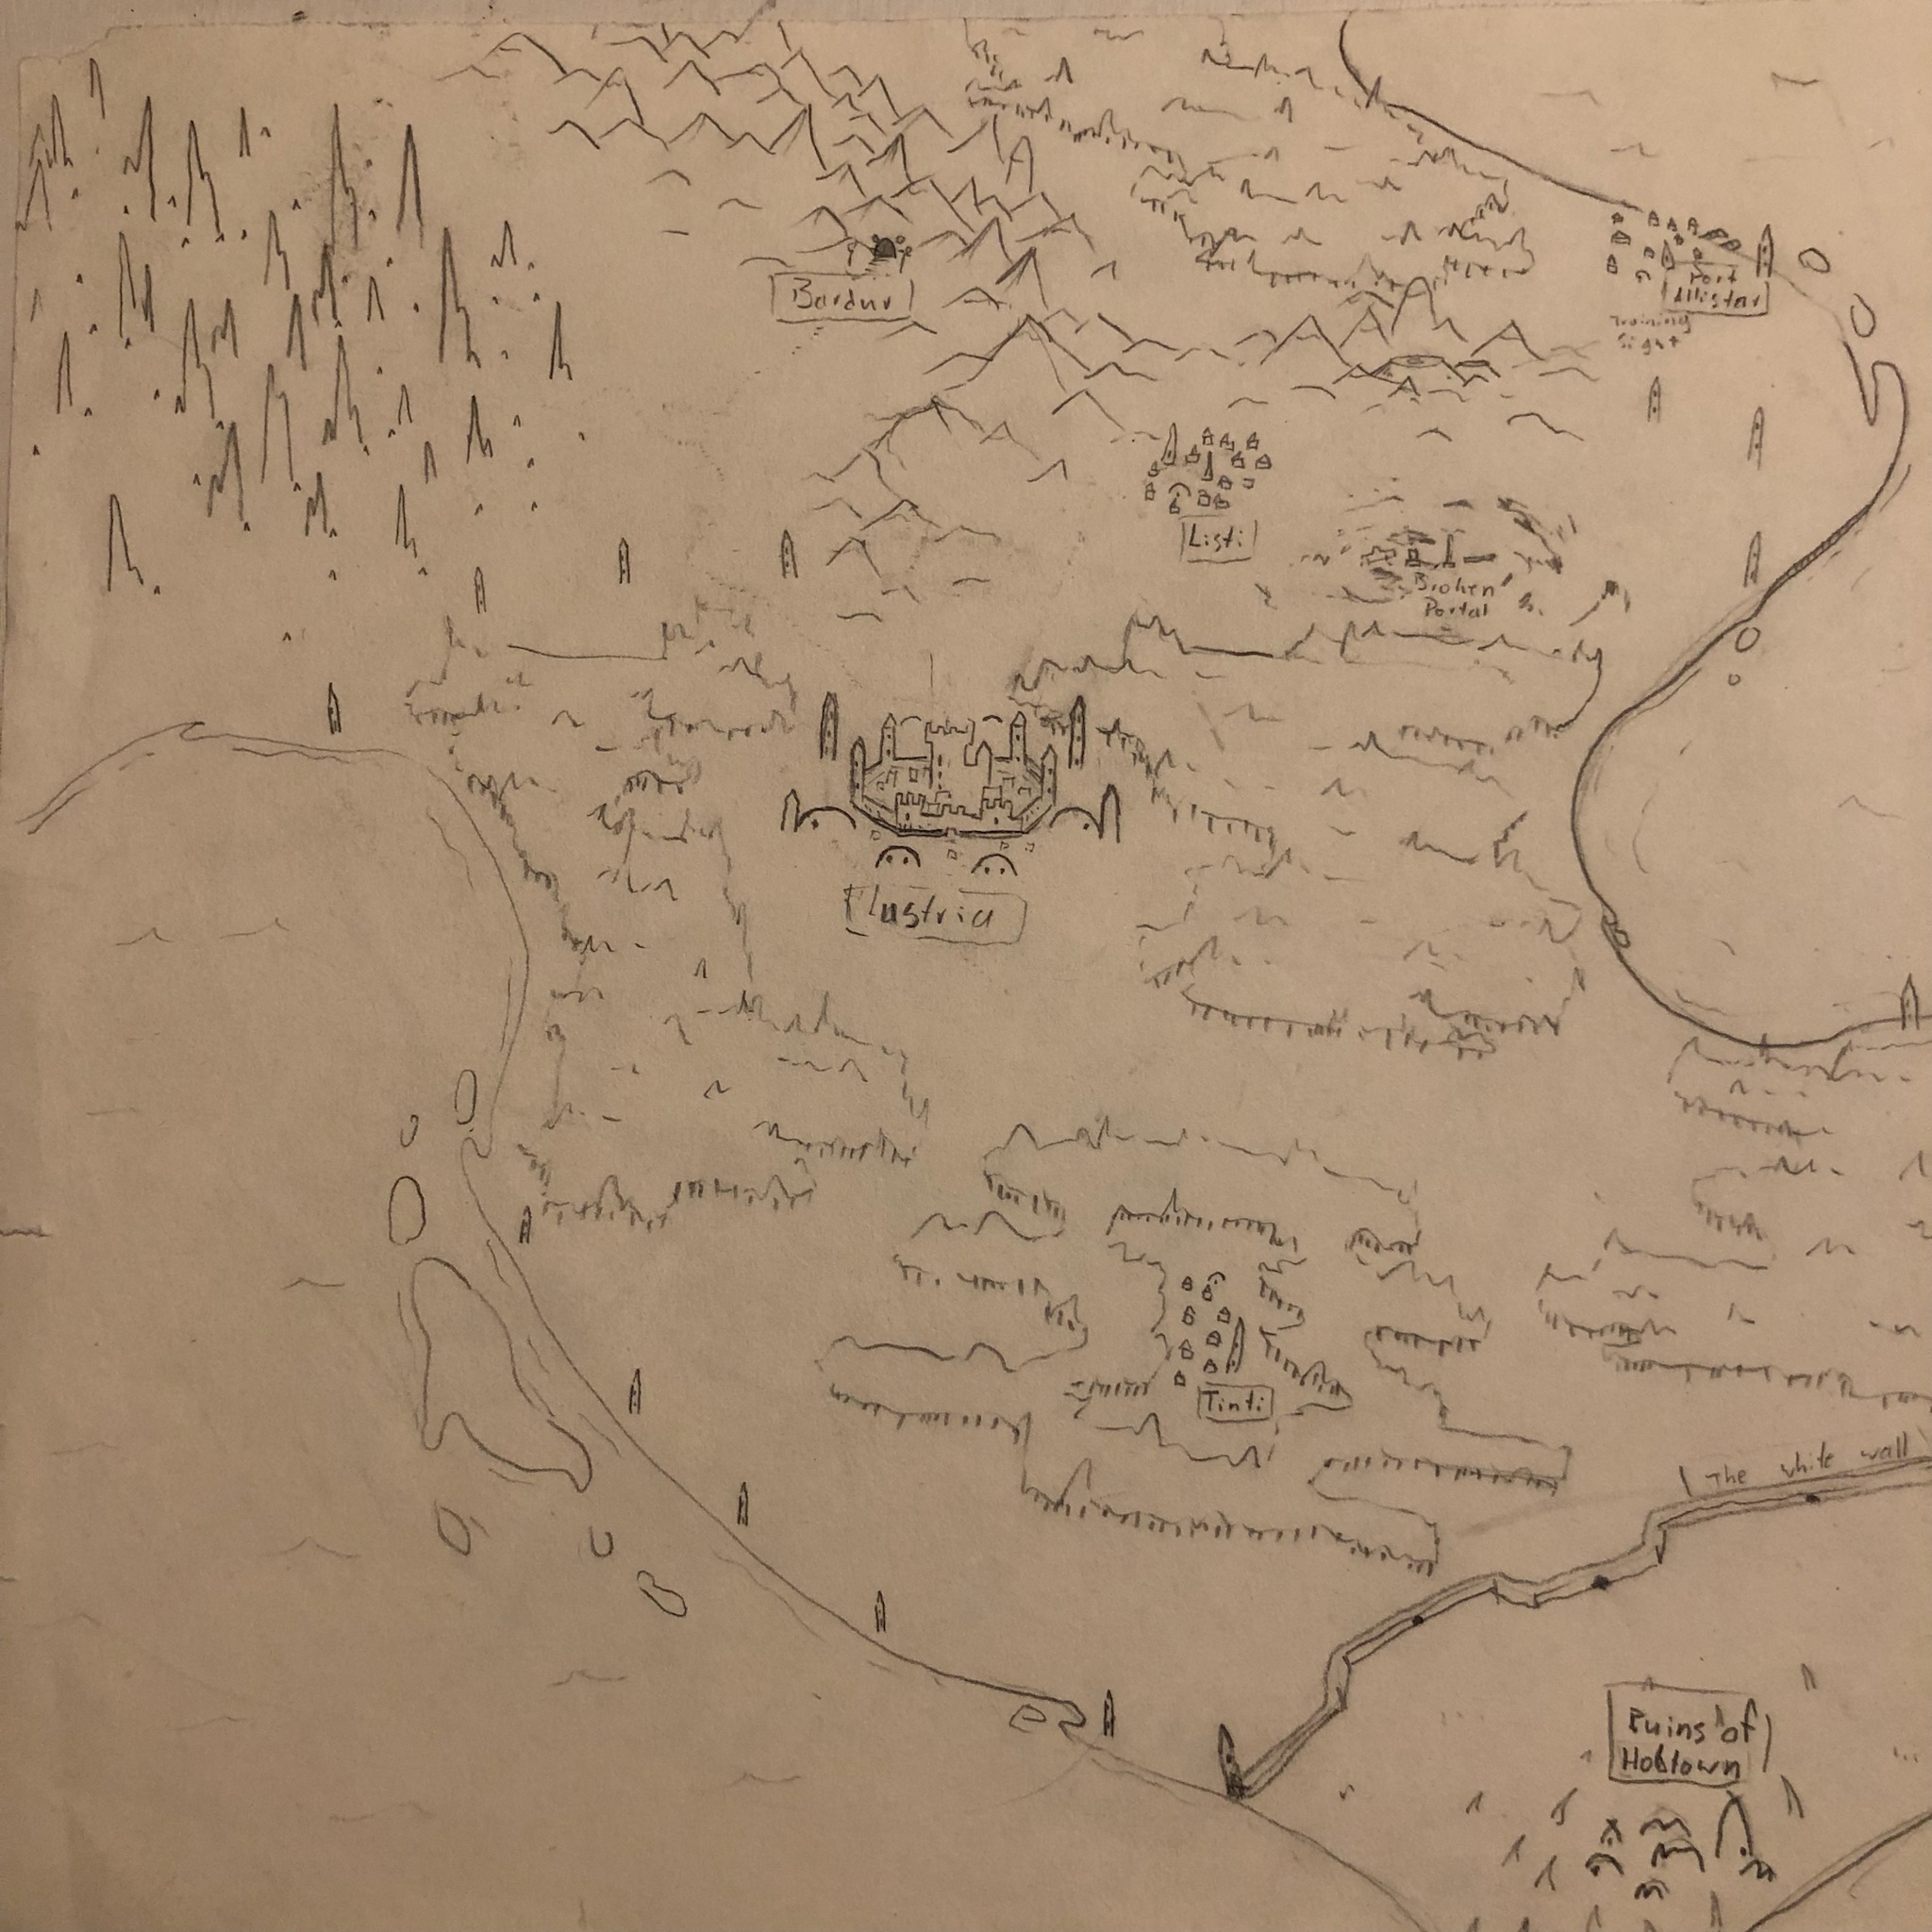 Bardur
Port
Allistar
Training
Sight
Listi
Broken
Portal
Flustria
Tinti
The white wall
Ruins of
Hobtown